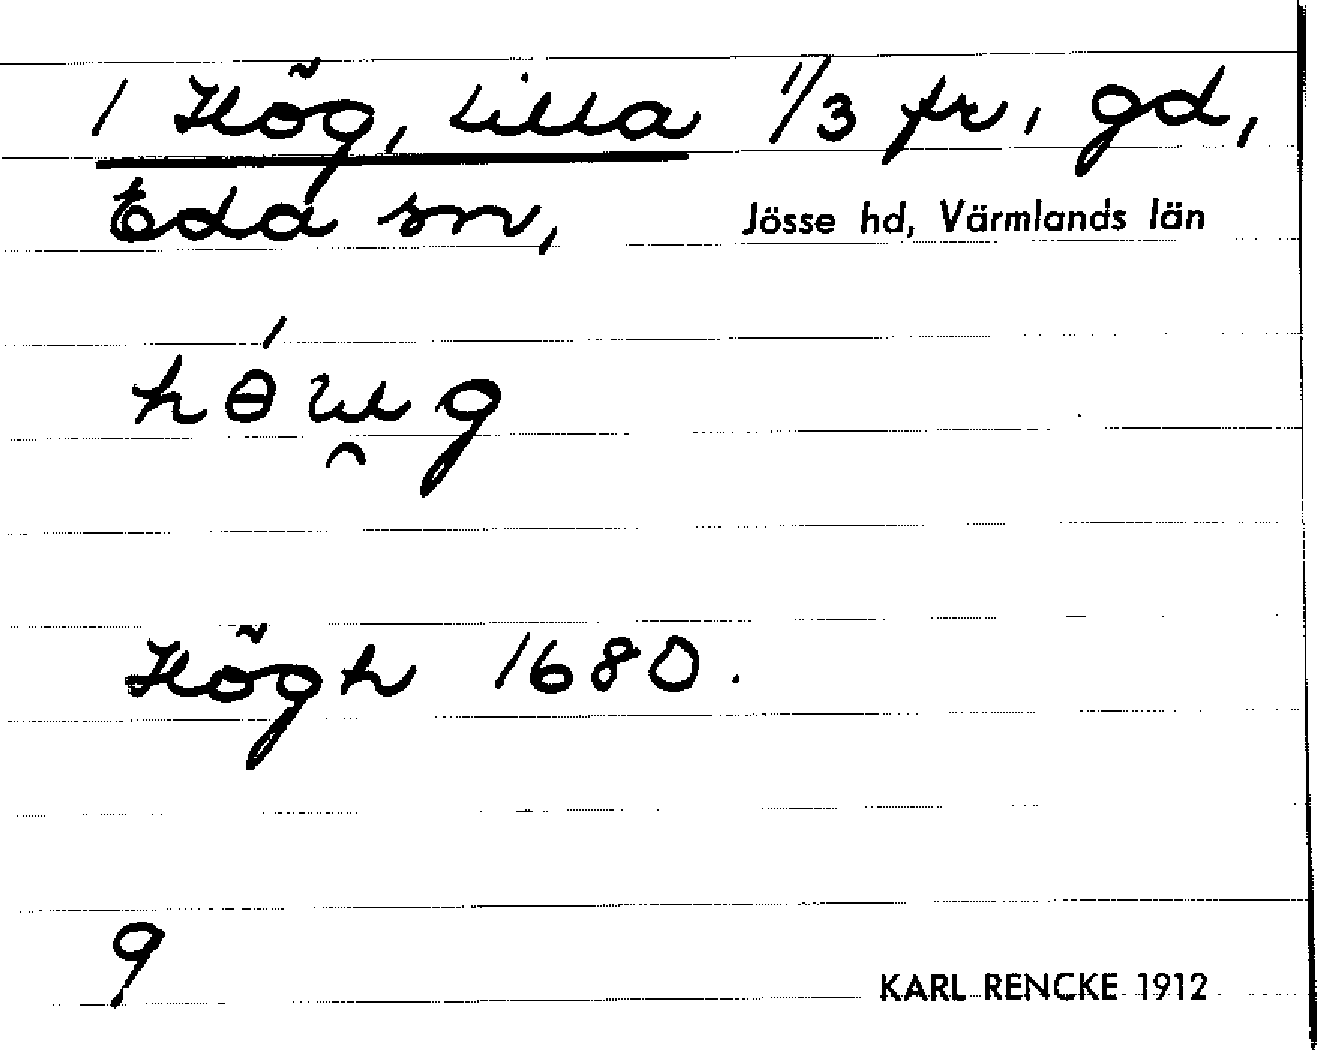 1 Hög, Lilla 1/3 fr, gd,
Eda sn, Jösse hd, Värmlands län
Högh 1680.
9
KARL RENCKE 1912